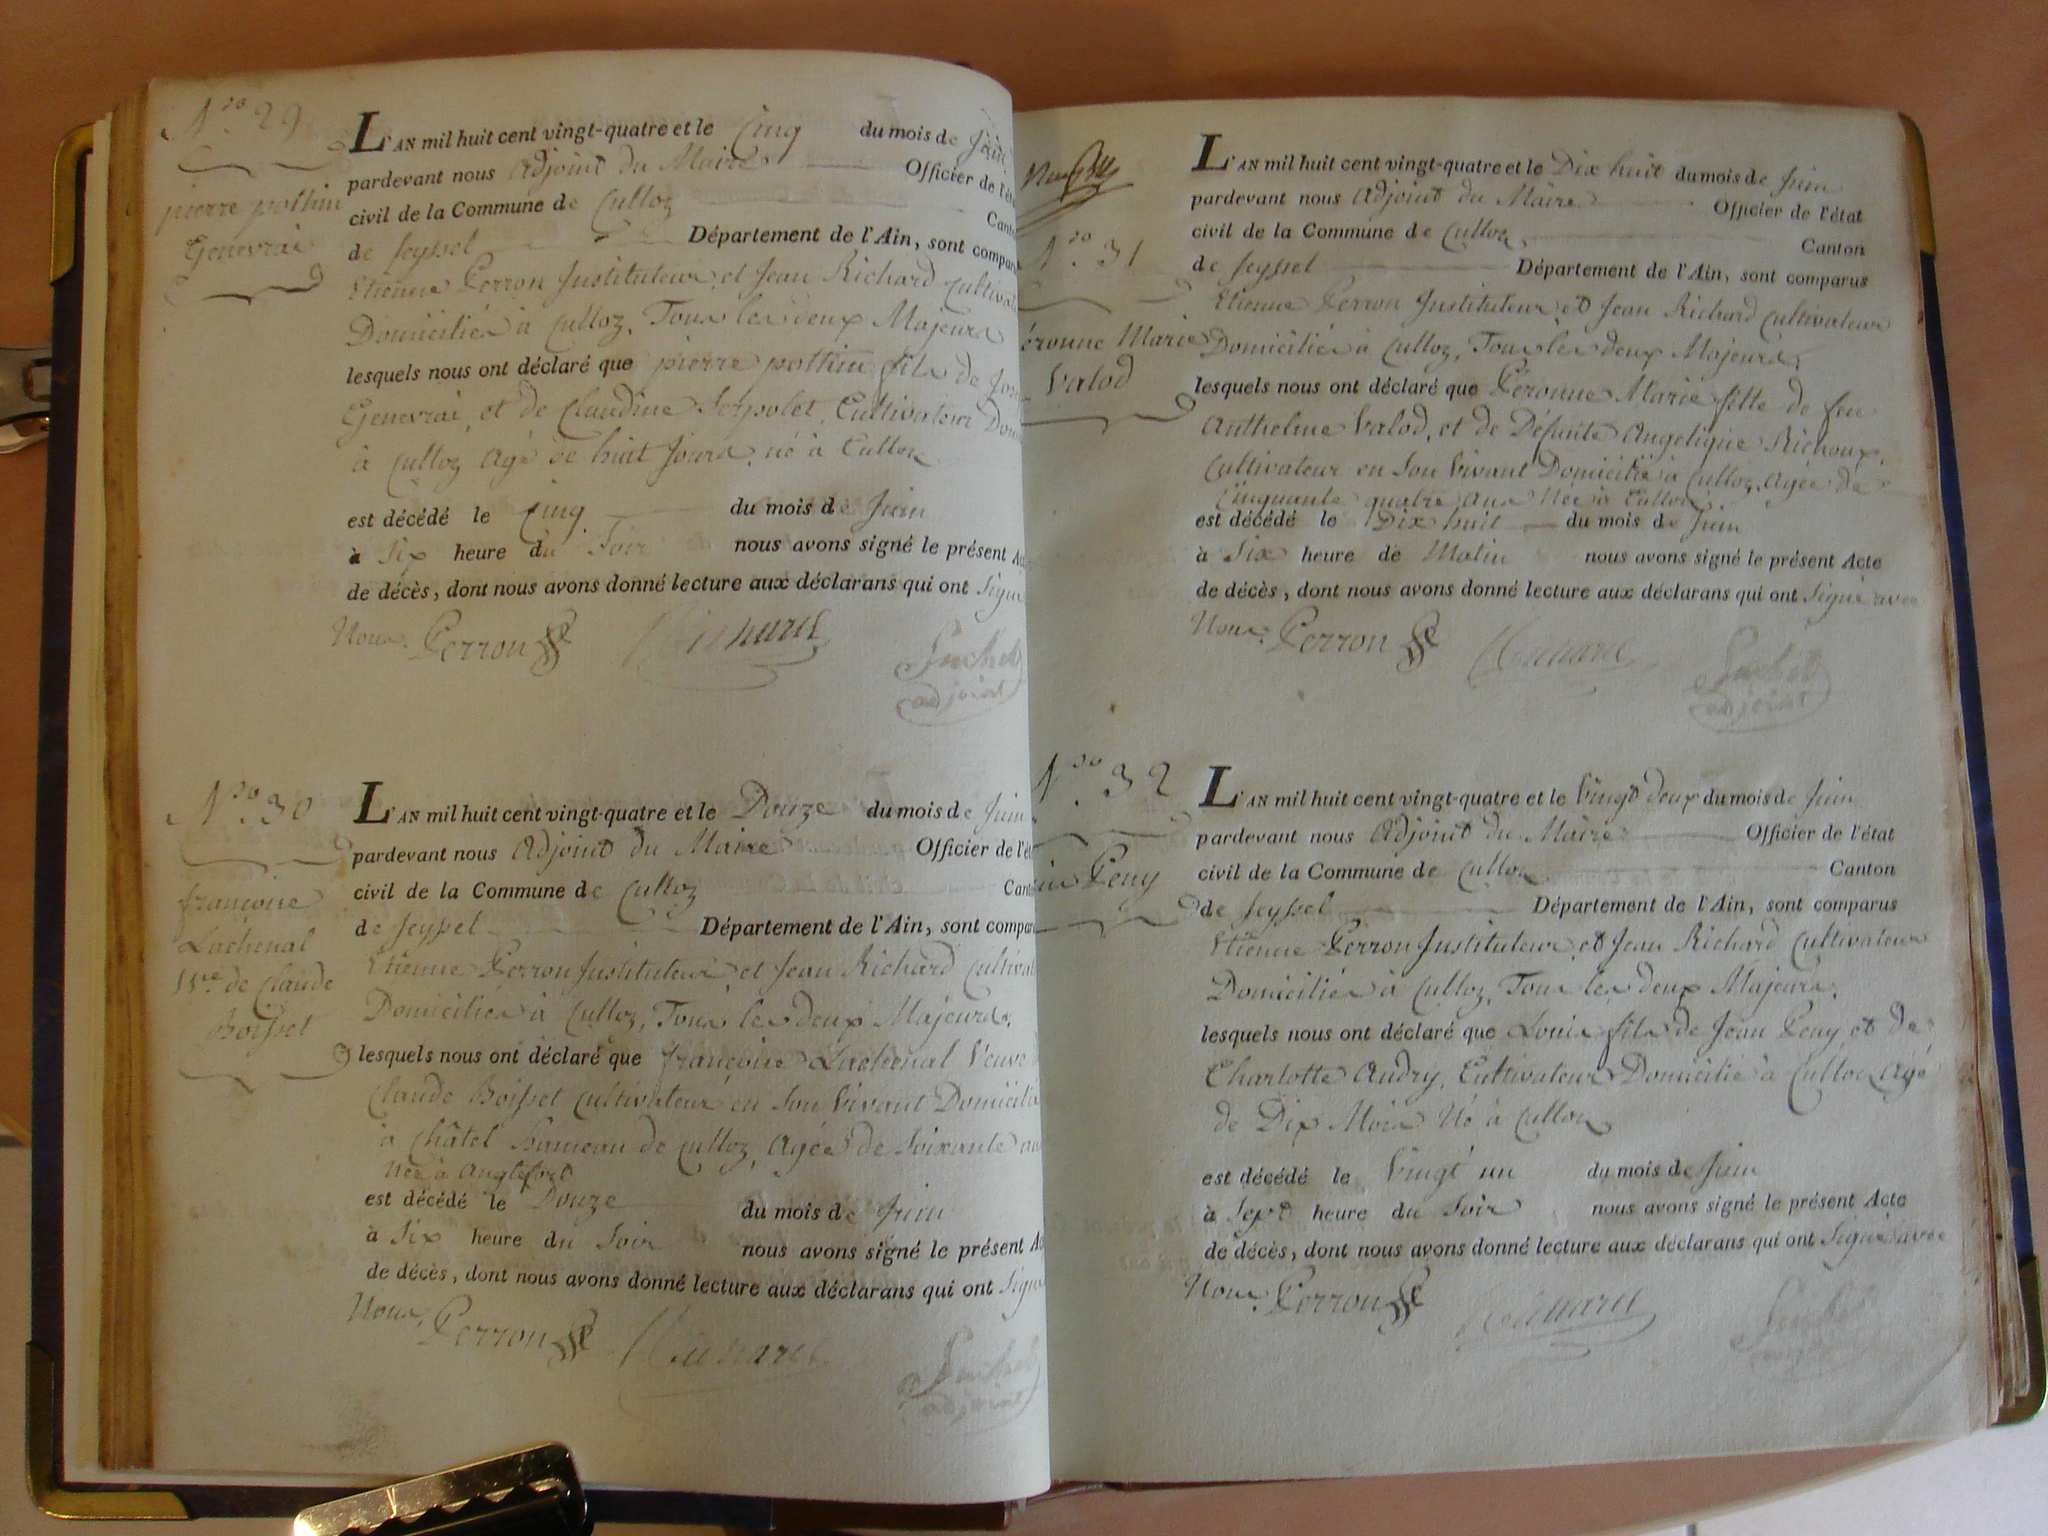 Nº. 29
pierre pothin
Genevrai
L'AN mil huit cent vingt-quatre et le Cinq du mois de Juin
pardevant nous Adjoint du Maire Officier de l'ét
civil de la Commune de Culloz Cant
de Seyssel Département de l'Ain, sont compar
Etienne Perron Instituteur, et Jean Richard Cultivat
Domiciliés à Culloz, Tous les deux Majeurs
lesquels nous ont déclaré que pierre pothin fils de
Genevrai, et de Claudine Seyvolet, Cultivateur Dom
à Culloz Agé de huit Jours, né à Culloz
est décédé le Cinq du mois de Juin
à Six heure du Soir nous avons signé le présent A
de décès, dont nous avons donné lecture aux déclarans qui ont Signé
Nous. Perron
Suchet
adjoint
Nº. 30
françoise
Lachenal
Vve. de Claude
Boisset
L'AN mil huit cent vingt-quatre et le Douze du mois de Juin
pardevant nous Adjoint du Maire Officier de l'ét
civil de la Commune de Culloz Cant
de Seyssel Département de l'Ain, sont compar
Etienne Perron Instituteur, et Jean Richard Cultivat
Domiciliés à Culloz, Tous les deux Majeurs.
lesquels nous ont déclaré que françoise Lachenal Veuve
Claude Boisset Cultivateur en Son Vivant Domicilié
à Châtel hameau de Culloz, Agée de Soixante an
Née à Anglefort
est décédé le Douze du mois de Juin
à Six heure du Soir nous avons signé le présent Ac
de décès, dont nous avons donné lecture aux déclarans qui ont Signé
Nous, Perron
Suchet
adjoint
Nº. 31
éronne Marie
Valod
L'AN mil huit cent vingt-quatre et le Dix huit du mois de Juin
pardevant nous Adjoint du Maire Officier de l'état
civil de la Commune de Culloz Canton
de Seyssel Département de l'Ain, sont comparus
Etienne Perron Instituteur, et Jean Richard Cultivateur
Domiciliés à Culloz, Tous les deux Majeurs,
lesquels nous ont déclaré que Péronne Marie fille de feu
Anthelme Valod, et de Défunte Angelique Richoux,
Cultivateur en Son Vivant Domicilié à Culloz, Agée de
Cinquante quatre ans Née à Culloz
est décédé le Dix huit du mois de Juin
à Six heure de Matin nous avons signé le présent Acte
de décès, dont nous avons donné lecture aux déclarans qui ont Signé avec
Nous. Perron
Suchet
adjoint
Nº. 32
Peny
L'AN mil huit cent vingt-quatre et le Vingt deux du mois de Juin
pardevant nous Adjoint du Maire Officier de l'état
civil de la Commune de Culloz Canton
de Seyssel Département de l'Ain, sont comparus
Etienne Perron Instituteur, et Jean Richard Cultivateur
Domiciliés à Culloz, Tous les deux Majeurs,
lesquels nous ont déclaré que Louis fils de Jean Peny, et de
Charlotte Audry, Cultivateur Domicilié à Culloz Agé
de Dix Mois Né à Culloz
est décédé le Vingt un du mois de Juin
à Sept heure du Soir nous avons signé le présent Acte
de décès, dont nous avons donné lecture aux déclarans qui ont Signé avec
Nous. Perron
Suchet